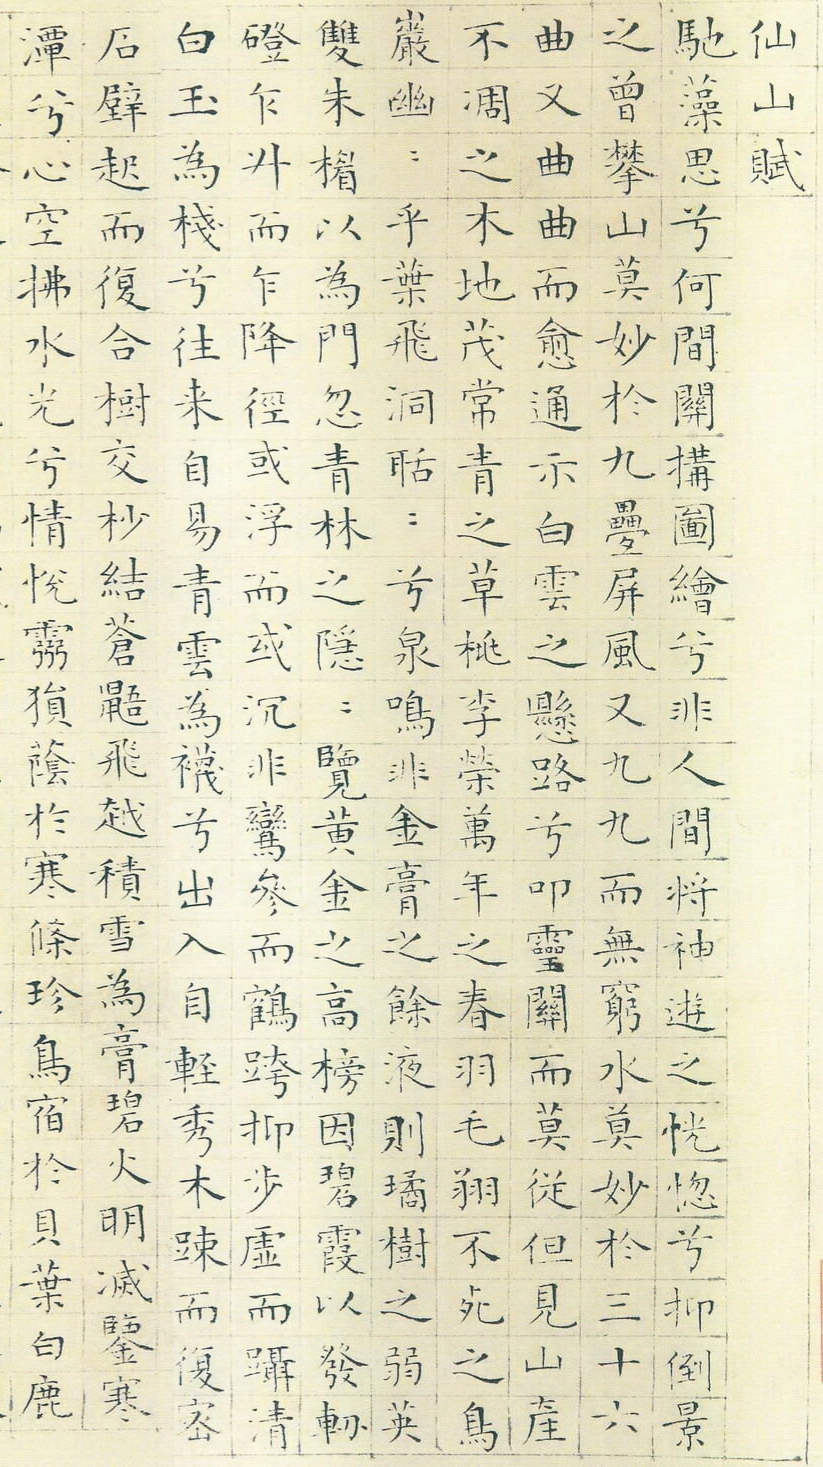 仙山賦
馳藻思兮何間關搆圖繪兮非人間將神遊之恍惚兮抑倒景
之曾攀山莫妙於九疊屏風又九九而無窮水莫妙於三十六
曲又曲曲而愈通示白雲之懸路兮叩靈關而莫從但見山產
不凋之木地茂常青之草桃李榮萬年之春羽毛翔不死之鳥
巖幽〻乎葉飛洞聒〻兮泉鳴非金膏之餘液則璚樹之弱英
雙朱楣以為門忽青林之隱〻覽黃金之高榜因碧霞以發軔
磴乍升而乍降徑或浮而或沉非鸞驂而鶴跨抑步虛而躡清
白玉為棧兮往来自易青雲為襪兮出入自輕秀木踈而復密
石壁起而復合樹交杪結蒼鼯飛越積雪為膏碧火明滅鑒寒
潭兮心空拂水光兮情悅霧猿蔭於寒條珍鳥宿於貝葉白鹿